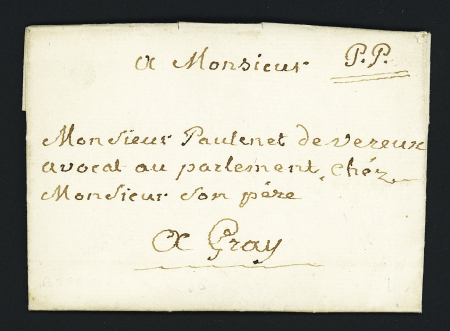 a Monsieur P.P.
Monsieur Paulenet de vereux
avocat au parlement, chéz
Monsieur son pére
a Gray